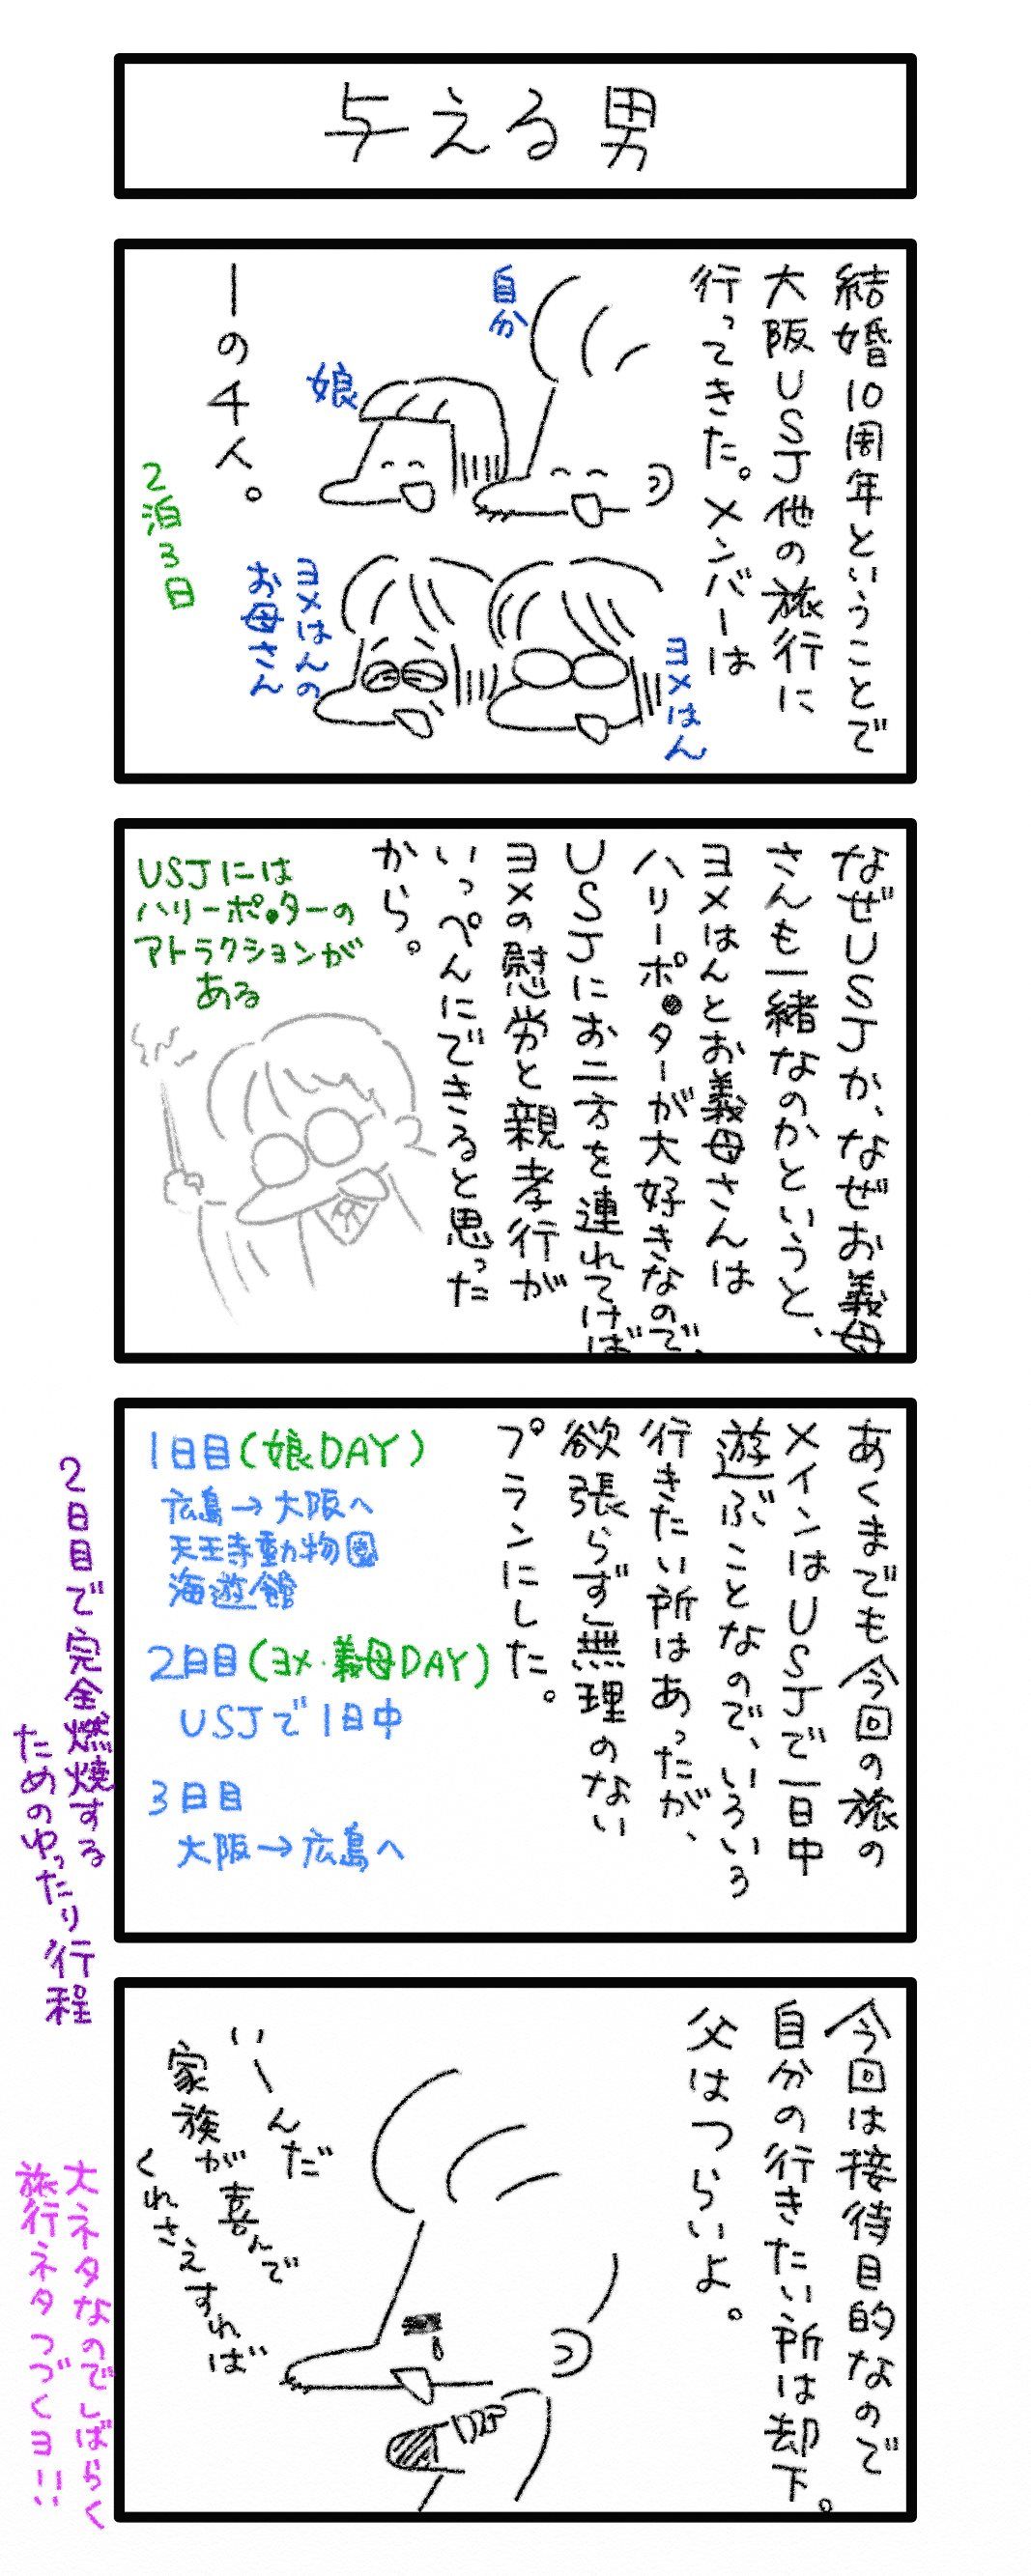 与える男
結婚10周年ということで
大阪USJ他の旅行に
行ってきた。メンバーは
自分
娘
ヨメはん
ヨメはんの
お母さん
ーの4人。
2泊3日
なぜUSJか、なぜお義母
さんも一緒なのかというと、
ヨメはんとお義母さんは
ハリーポ●ターが大好きなので、
USJにお二方を連れてけば
ヨメの慰労と親孝行が
いっぺんにできると思った
から。
USJには
ハリーポ●ターの
アトラクションが
ある
あくまでも今回の旅の
メインはUSJで一日中
遊ぶことなので、いろいろ
行きたい所はあったが、
欲張らず無理のない
プランにした。
1日目(娘DAY)
広島→大阪へ
天王寺動物園
海遊館
2日目(ヨメ・義母DAY)
USJで1日中
3日目
大阪→広島へ
2日目で完全燃焼する
ためのゆったり行程
今回は接待目的なので
自分の行きたい所は却下。
父はつらいよ。
いーんだ
家族が喜んで
くれさえすれば
大ネタなのでしばらく
旅行ネタつづくヨ!!